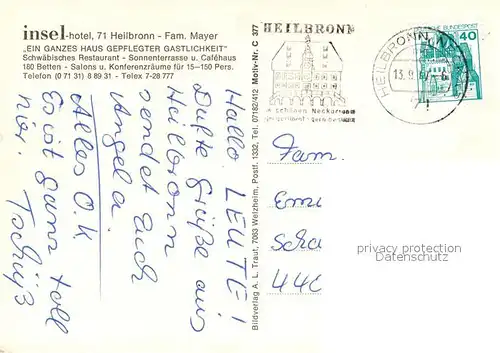 insel-hotel, 71 Heilbronn - Fam. Mayer
„EIN GANZES HAUS GEPFLEGTER GASTLICHKEIT"
Schwäbisches Restaurant - Sonnenterrasse u. Caféhaus
180 Betten - Salons u. Konferenzräume für 15—150 Pers.
Telefon (0 71 31) 8 89 31 - Telex 7-28 777
Hallo LEUTE!
Dufte Grüße aus
Heilbronn
sendet Euch
Angela.
Alles O.K
Es ist ganz toll
hier. Tschüß
Bildverlag A. L. Traut, 7063 Welzheim, Postf. 1332, Tel. 07182/412 Motiv-Nr. C 377
HEILBRONN
schönen Neckar
HEILBRONN
13.9.
BUNDESPOST
40
Fam.
Emi
Scha
440
privacy protection
Datenschutz